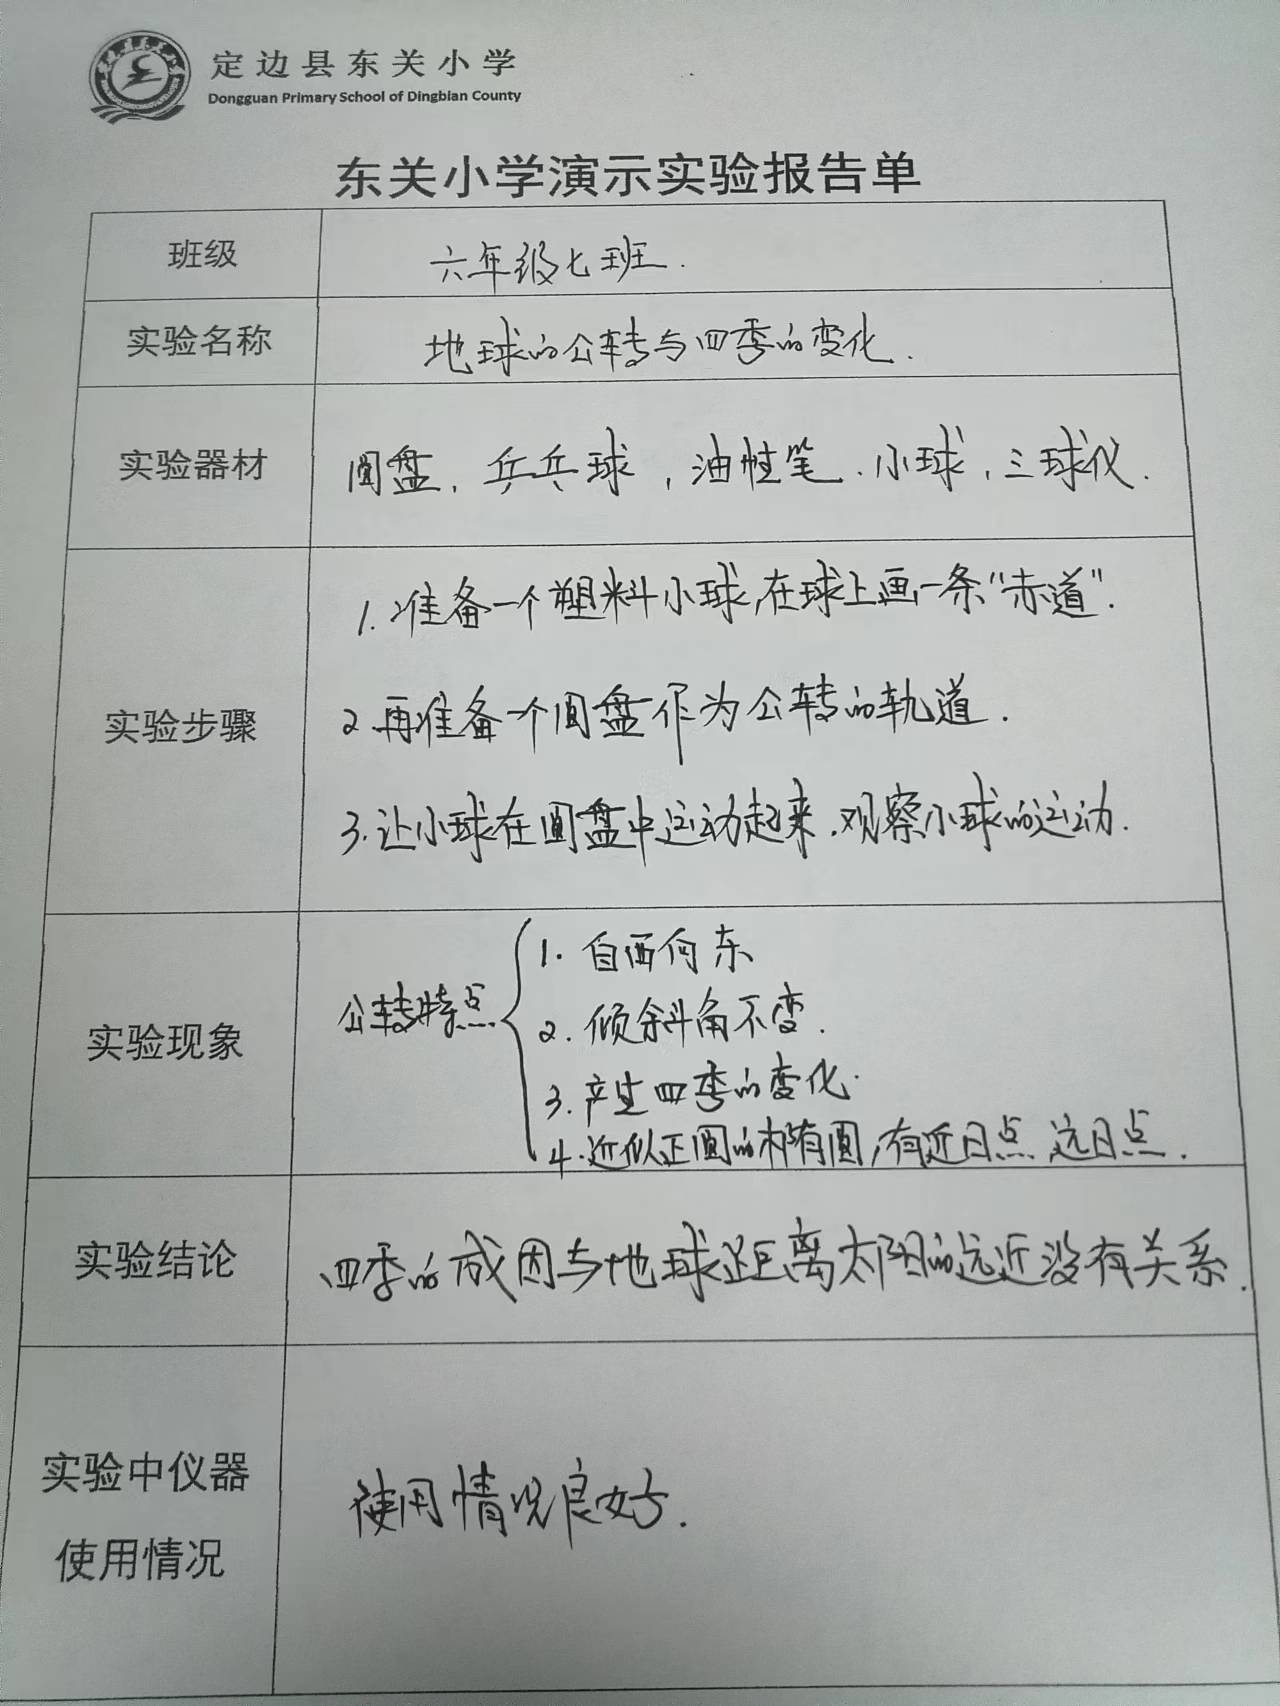 定边县东关小学
Dongguan Primary School of Dingbian County
东关小学演示实验报告单
班级
六年级七班.
实验名称
地球的公转与四季的变化.
实验器材
圆盘, 乒乓球, 油性笔. 小球, 三球仪.
实验步骤
1. 准备一个塑料小球,在球上画一条“赤道”.
2 再准备一个圆盘作为公转的轨道.
3. 让小球在圆盘中运动起来.观察小球的运动.
实验现象
公转特点
1. 自西向东
2. 倾斜角不变.
3. 产生四季的变化.
4. 近似正圆的椭圆,有近日点、远日点.
实验结论
四季的成因与地球距离太阳的远近没有关系.
实验中仪器
使用情况
使用情况良好.